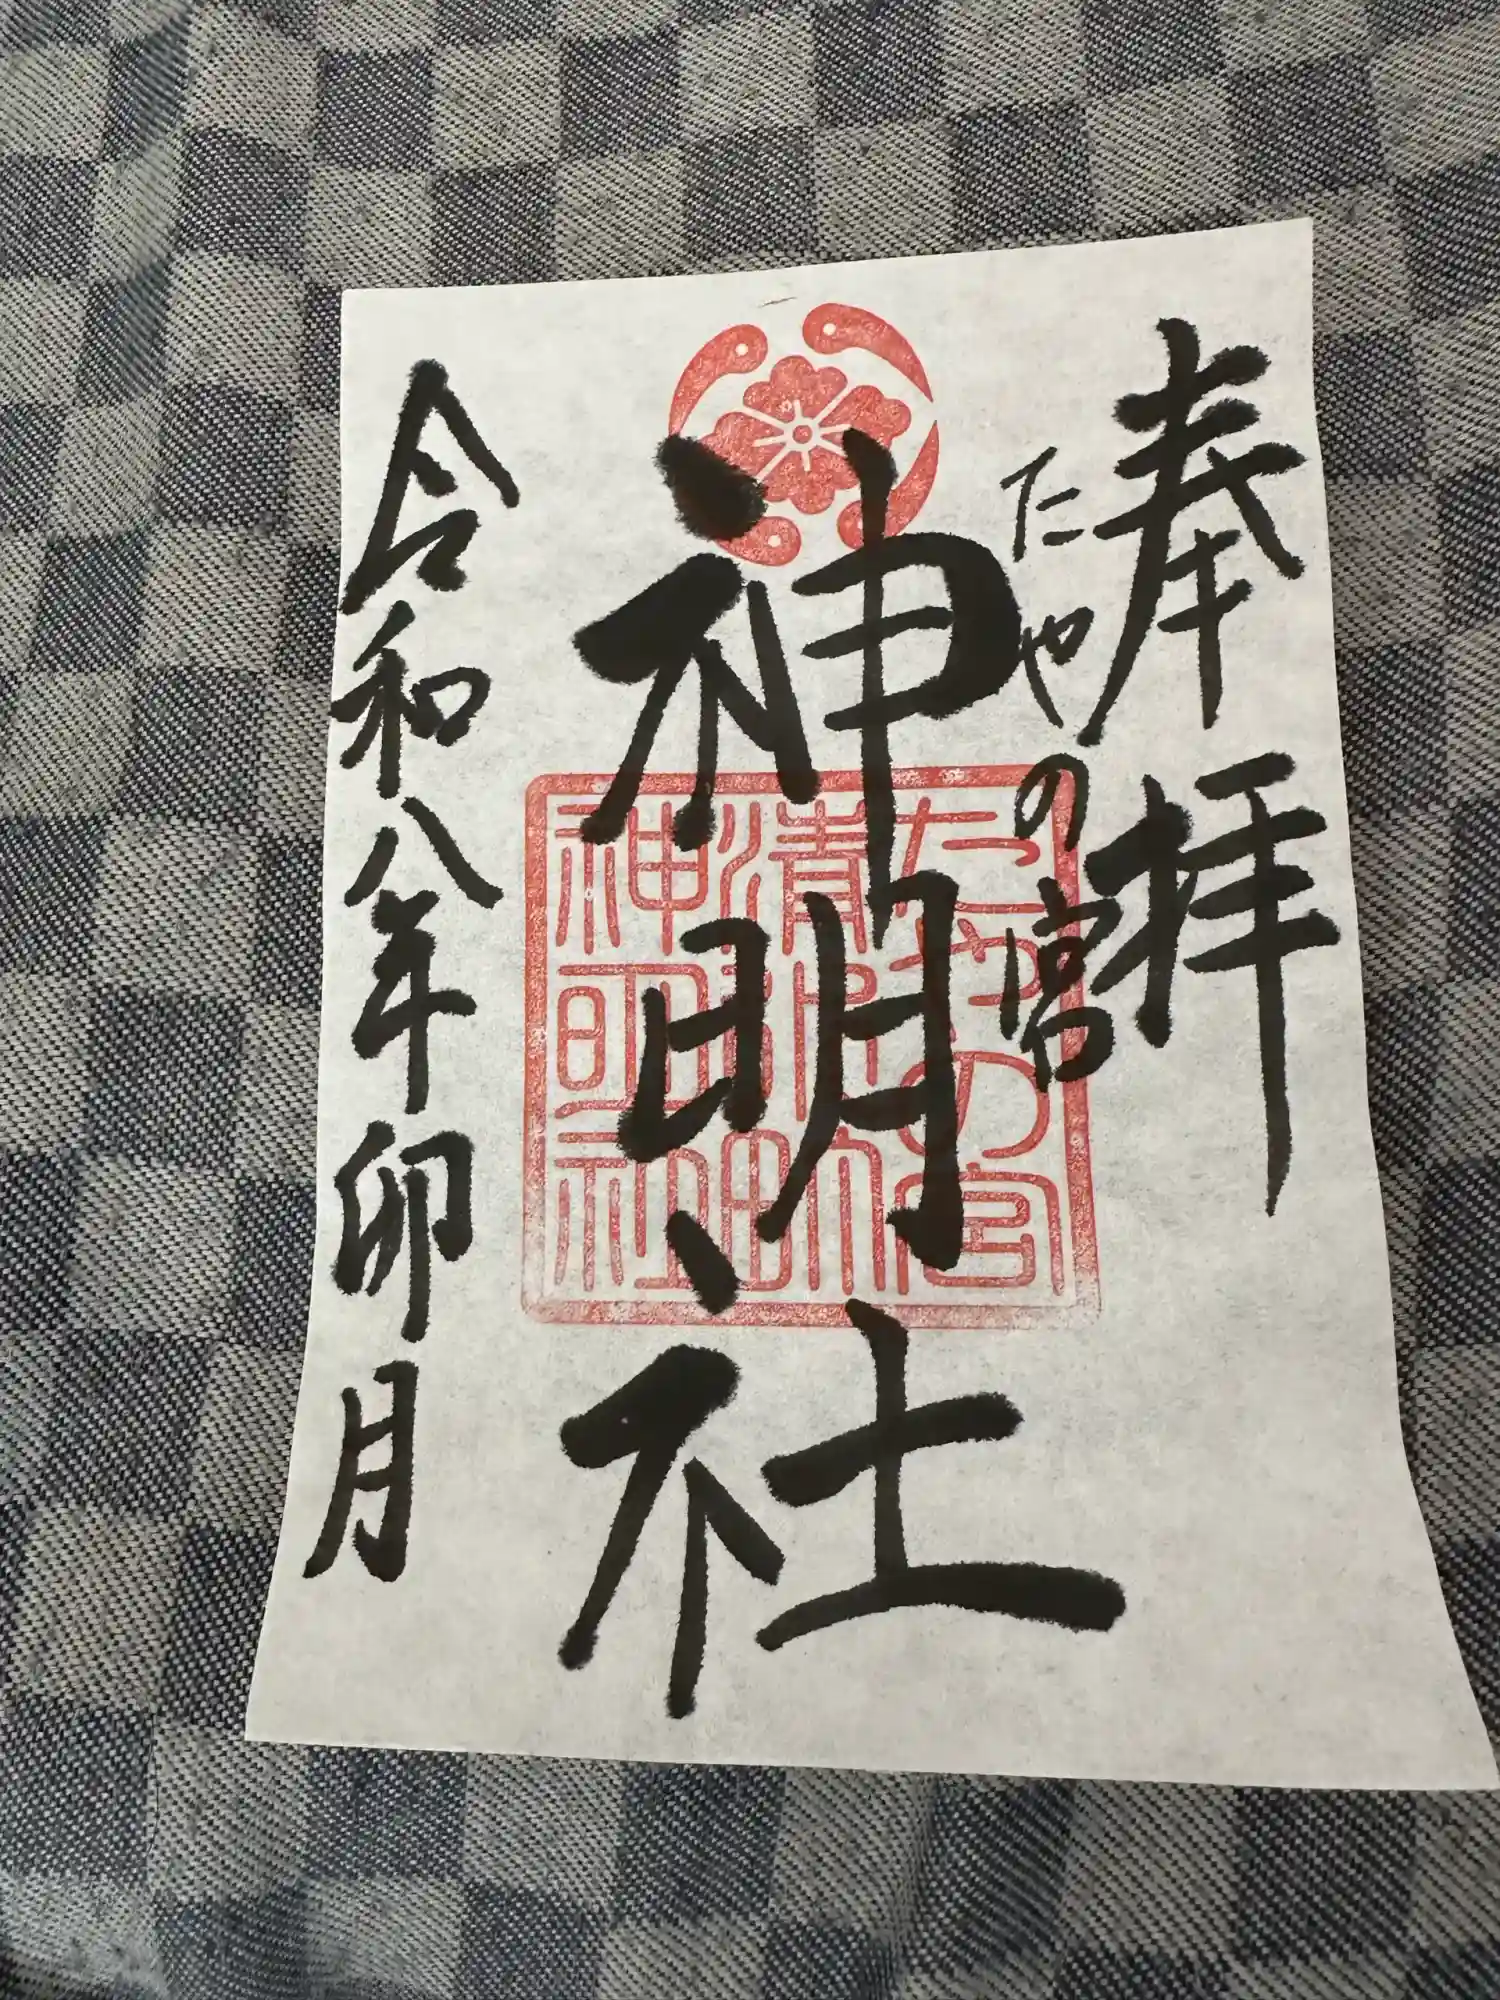 奉拝
たやの宮
神明社
令和八年卯月
たやの宮
神明社